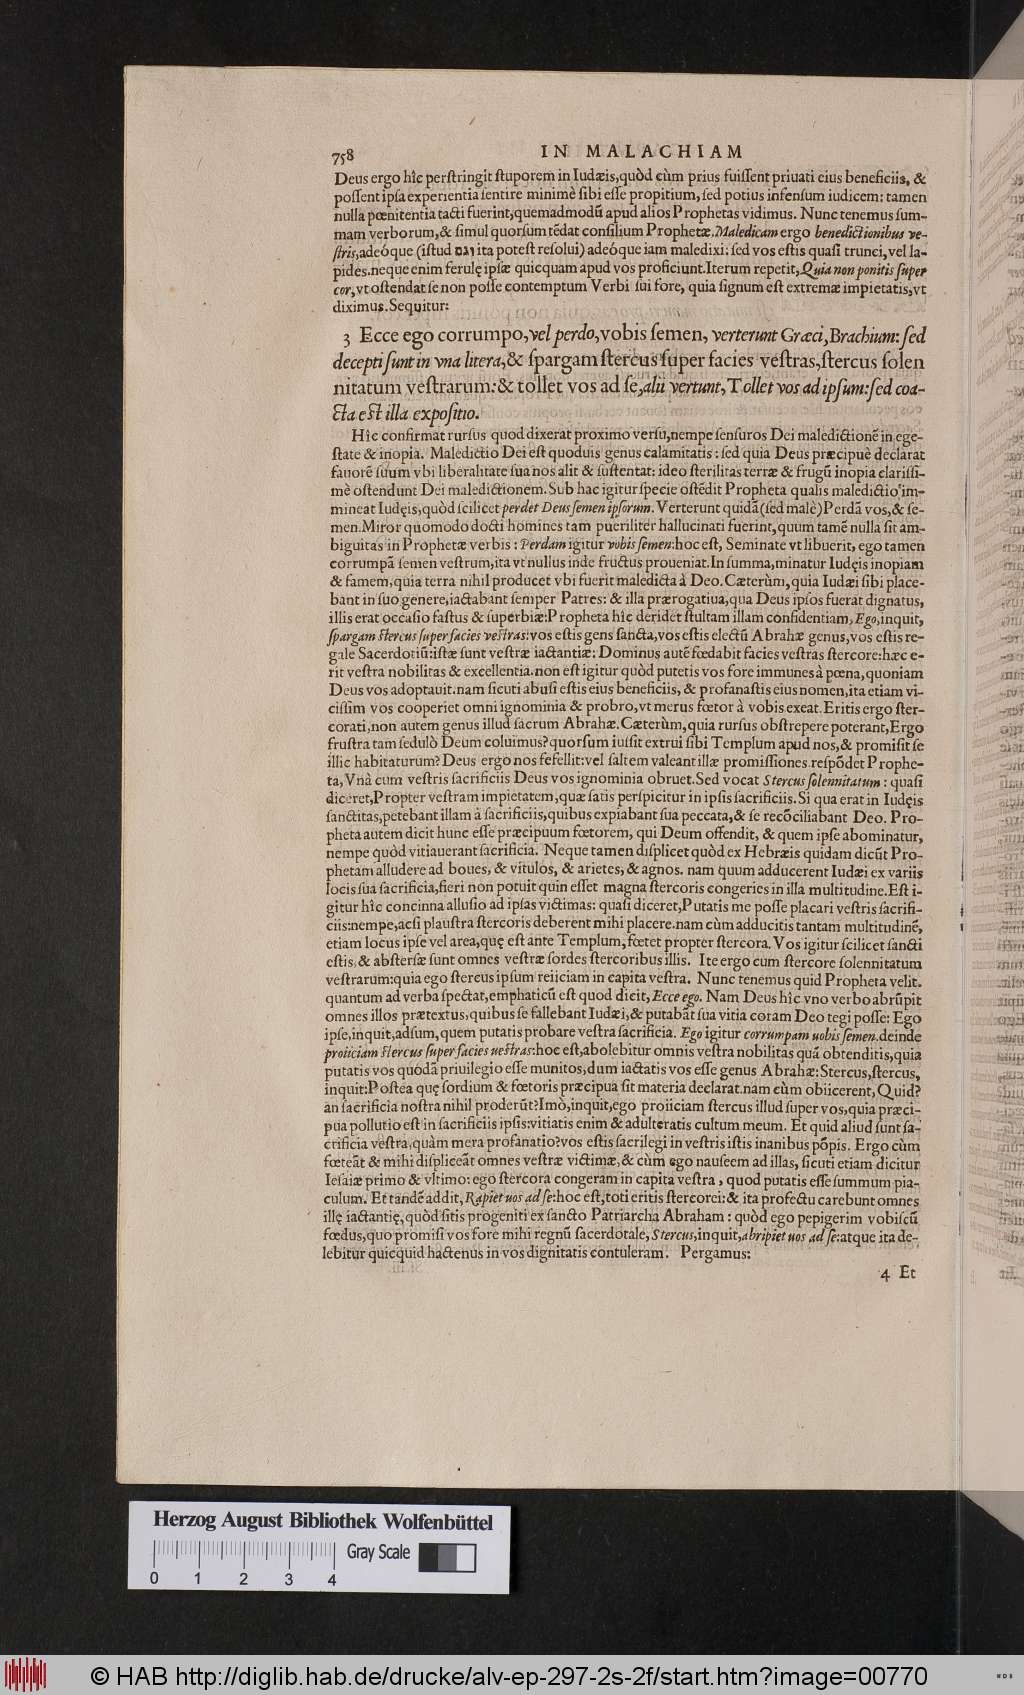 758 IN MALACHIAM
Deus ergo hîc perſtringit ſtuporem in Iudæis, quòd cùm prius fuiſſent priuati eius beneficiis, &
poſſent ipſa experientia ſentire minimè ſibi eſſe propitium, ſed potius infenſum iudicem: tamen
nulla pœnitentia tacti fuerint, quemadmodũ apud alios Prophetas vidimus. Nunc tenemus ſum-
mam verborum, & ſimul quorſum tẽdat conſilium Prophetæ. Maledicam ergo benedictionibus ve-
ſtris, adeóque (iſtud וגם ita poteſt reſolui) adeóque iam maledixi: ſed vos eſtis quaſi trunci, vel la-
pides. neque enim ferulę ipſæ quicquam apud vos proficiunt. Iterum repetit, Quia non ponitis ſuper
cor, vt oſtendat ſe non poſſe contemptum Verbi ſui fore, quia ſignum eſt extremæ impietatis, vt
diximus. Sequitur:
3 Ecce ego corrumpo, vel perdo, vobis ſemen, verterunt Græci, Brachium: ſed
decepti ſunt in vna litera, & ſpargam ſtercus ſuper facies veſtras, ſtercus ſolen
nitatum veſtrarum: & tollet vos ad ſe, alii vertunt, Tollet vos ad ipſum: ſed coa-
cta eſt illa expoſitio.
Hîc confirmat rurſus quod dixerat proximo verſu, nempe ſenſuros Dei maledictionẽ in ege-
ſtate & inopia. Maledictio Dei eſt quoduis genus calamitatis: ſed quia Deus præcipuè declarat
fauorẽ ſuum vbi liberalitate ſua nos alit & ſuſtentat: ideo ſterilitas terræ & frugũ inopia clariſſi-
mè oſtendunt Dei maledictionem. Sub hac igitur ſpecie oſtẽdit Propheta qualis maledictio im-
mineat Iudęis, quòd ſcilicet perdet Deus ſemen ipſorum. Verterunt quidã (ſed malè) Perdã vos, & ſe-
men. Miror quomodo docti homines tam pueriliter hallucinati fuerint, quum tamẽ nulla ſit am-
biguitas in Prophetæ verbis: Perdam igitur vobis ſemen: hoc eſt, Seminate vt libuerit, ego tamen
corrumpã ſemen veſtrum, ita vt nullus inde fructus proueniat. In ſumma, minatur Iudęis inopiam
& famem, quia terra nihil producet vbi fuerit maledicta à Deo. Cæterùm, quia Iudæi ſibi place-
bant in ſuo genere, iactabant ſemper Patres: & illa prærogatiua, qua Deus ipſos fuerat dignatus,
illis erat occaſio faſtus & ſuperbiæ: Propheta hîc deridet ſtultam illam confidentiam, Ego, inquit,
ſpargam ſtercus ſuper facies veſtras: vos eſtis gens ſancta, vos eſtis electũ Abrahæ genus, vos eſtis re-
gale Sacerdotiũ: iſtæ ſunt veſtræ iactantiæ: Dominus autẽ fœdabit facies veſtras ſtercore: hæc e-
rit veſtra nobilitas & excellentia. non eſt igitur quòd putetis vos fore immunes à pœna, quoniam
Deus vos adoptauit. nam ſicuti abuſi eſtis eius beneficiis, & profanaſtis eius nomen, ita etiam vi-
ciſſim vos cooperiet omni ignominia & probro, vt merus fœtor à vobis exeat. Eritis ergo ſter-
corati, non autem genus illud ſacrum Abrahæ. Cæterùm, quia rurſus obſtrepere poterant, Ergo
fruſtra tam ſedulò Deum coluimus? quorſum iuſſit extrui ſibi Templum apud nos, & promiſit ſe
illic habitaturum? Deus ergo nos fefellit: vel ſaltem valeant illæ promiſſiones. reſpõdet Prophe-
ta, Vnà cum veſtris ſacrificiis Deus vos ignominia obruet. Sed vocat Stercus ſolennitatum: quaſi
diceret, Propter veſtram impietatem, quæ ſatis perſpicitur in ipſis ſacrificiis. Si qua erat in Iudęis
ſanctitas, petebant illam à ſacrificiis, quibus expiabant ſua peccata, & ſe recõciliabant Deo. Pro-
pheta autem dicit hunc eſſe præcipuum fœtorem, qui Deum offendit, & quem ipſe abominatur,
nempe quòd vitiauerant ſacrificia. Neque tamen diſplicet quòd ex Hebræis quidam dicũt Pro-
phetam alludere ad boues, & vitulos, & arietes, & agnos. nam quum adducerent Iudæi ex variis
locis ſua ſacrificia, fieri non potuit quin eſſet magna ſtercoris congeries in illa multitudine. Eſt i-
gitur hîc concinna alluſio ad ipſas victimas: quaſi diceret, Putatis me poſſe placari veſtris ſacrifi-
ciis: nempe, acſi plauſtra ſtercoris deberent mihi placere. nam cùm adducitis tantam multitudinẽ,
etiam locus ipſe vel area, quę eſt ante Templum, fœtet propter ſtercora. Vos igitur ſcilicet ſancti
eſtis, & abſterſæ ſunt omnes veſtræ ſordes ſtercoribus illis. Ite ergo cum ſtercore ſolennitatum
veſtrarum: quia ego ſtercus ipſum reiiciam in capita veſtra. Nunc tenemus quid Propheta velit.
quantum ad verba ſpectat, emphaticũ eſt quod dicit, Ecce ego. Nam Deus hîc vno verbo abrũpit
omnes illos prætextus, quibus ſe fallebant Iudæi, & putabãt ſua vitia coram Deo tegi poſſe: Ego
ipſe, inquit, adſum, quem putatis probare veſtra ſacrificia. Ego igitur corrumpam uobis ſemen. deinde
proiiciam ſtercus ſuper facies ueſtras: hoc eſt, abolebitur omnis veſtra nobilitas quã obtenditis, quia
putatis vos quodã priuilegio eſſe munitos, dum iactatis vos eſſe genus Abrahæ: Stercus, ſtercus,
inquit: Poſtea quę ſordium & fœtoris præcipua ſit materia declarat. nam cùm obiicerent, Quid?
an ſacrificia noſtra nihil proderũt? Imò, inquit, ego proiiciam ſtercus illud ſuper vos, quia præci-
pua pollutio eſt in ſacrificiis ipſis: vitiatis enim & adulteratis cultum meum. Et quid aliud ſunt ſa-
crificia veſtra, quàm mera profanatio? vos eſtis ſacrilegi in veſtris iſtis inanibus põpis. Ergo cùm
fœteãt & mihi diſpliceãt omnes veſtræ victimæ, & cùm ego nauſeem ad illas, ſicuti etiam dicitur
Ieſaiæ primo & vltimo: ego ſtercora congeram in capita veſtra, quod putatis eſſe ſummum pia-
culum. Et tandẽ addit, Rapiet uos ad ſe: hoc eſt, toti eritis ſtercorei: & ita profectu carebunt omnes
illę iactantię, quòd ſitis progeniti ex ſancto Patriarcha Abraham: quòd ego pepigerim vobiſcũ
fœdus, quo promiſi vos fore mihi regnũ ſacerdotale, Stercus, inquit, abripiet uos ad ſe: atque ita de-
lebitur quicquid hactenus in vos dignitatis contuleram. Pergamus:
4 Et
Herzog August Bibliothek Wolfenbüttel
Gray Scale
0 1 2 3 4
© HAB http://diglib.hab.de/drucke/alv-ep-297-2s-2f/start.htm?image=00770